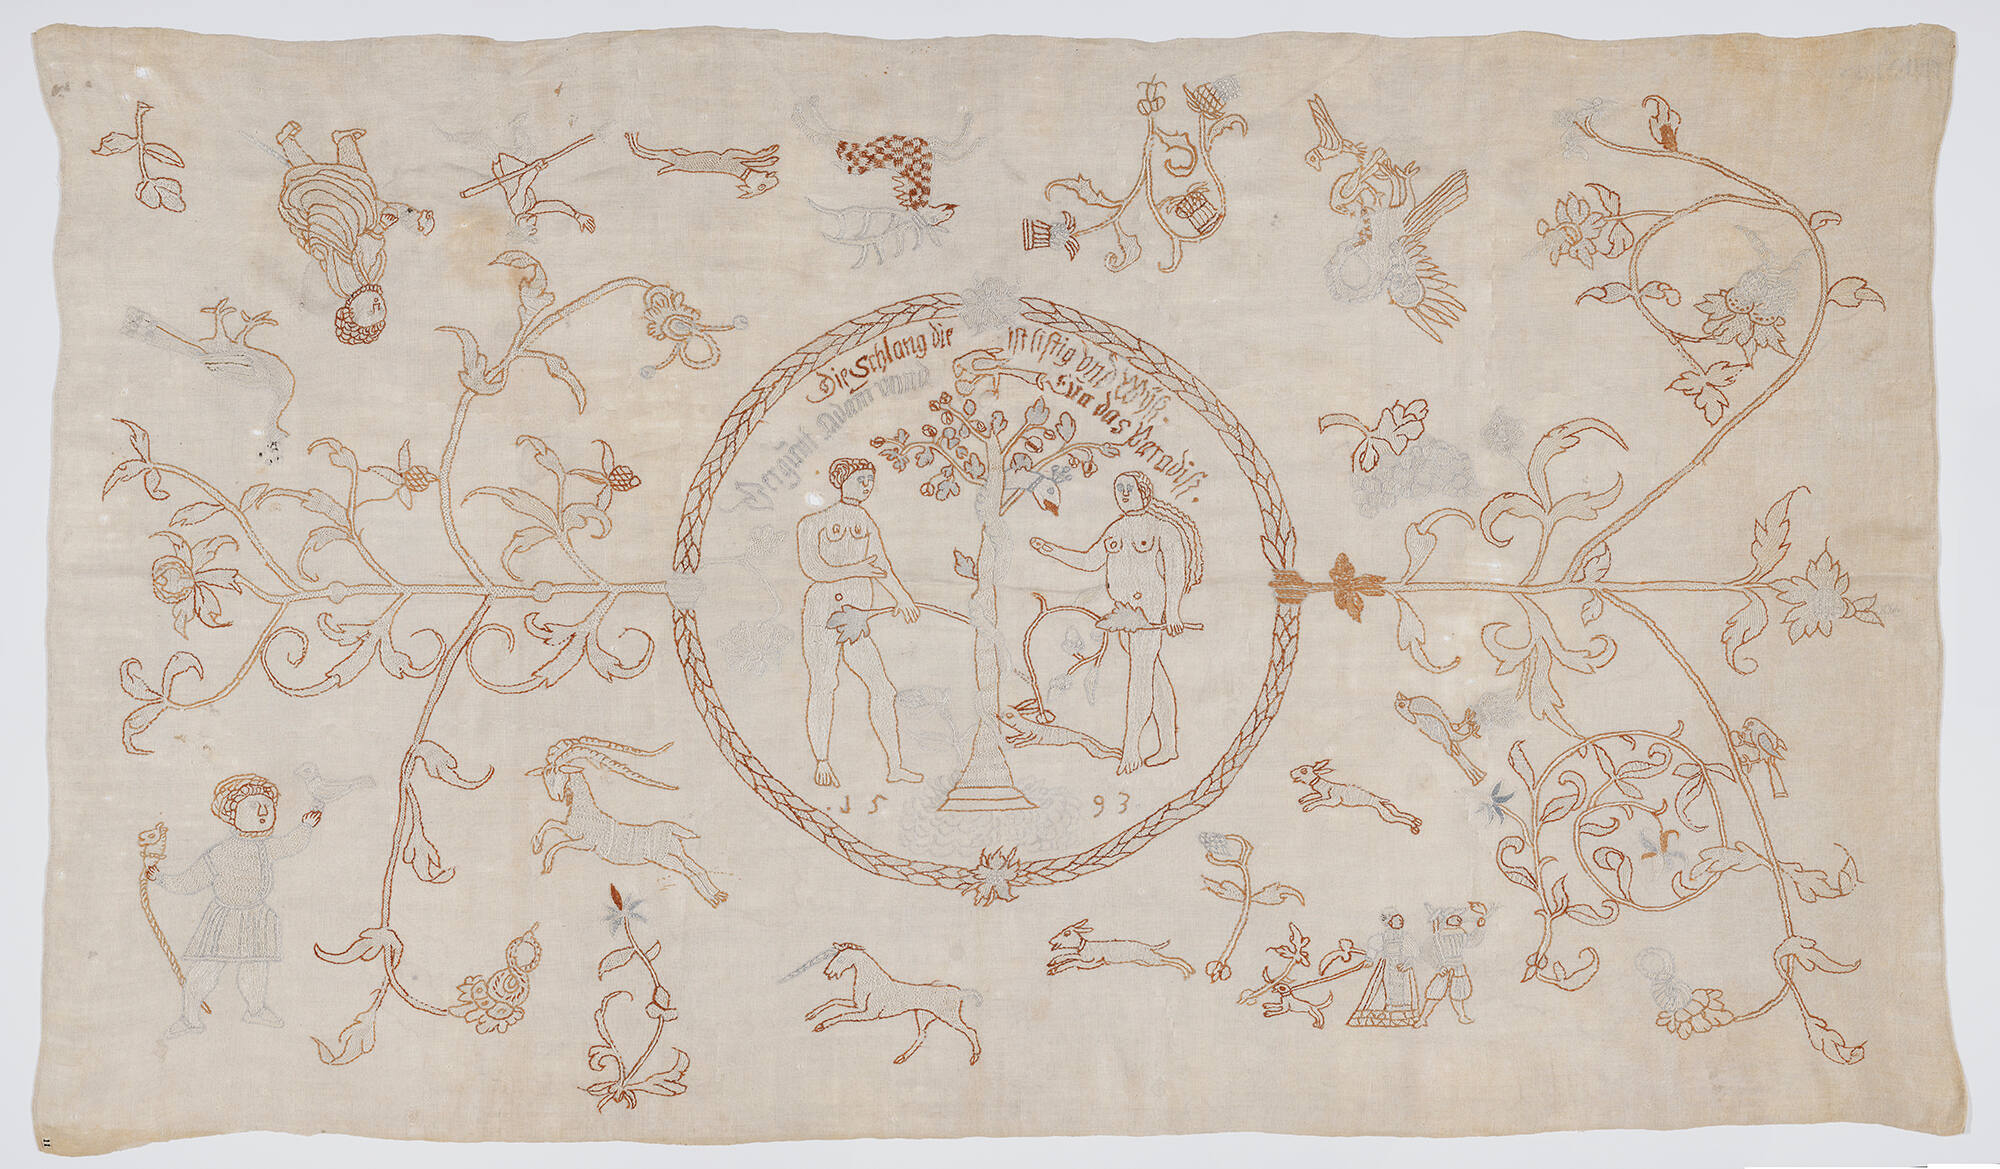 Die Schlang die ist listig vnd Wÿß.
Vergünt Adam vnnd Eua das Paradiß.
1593
II